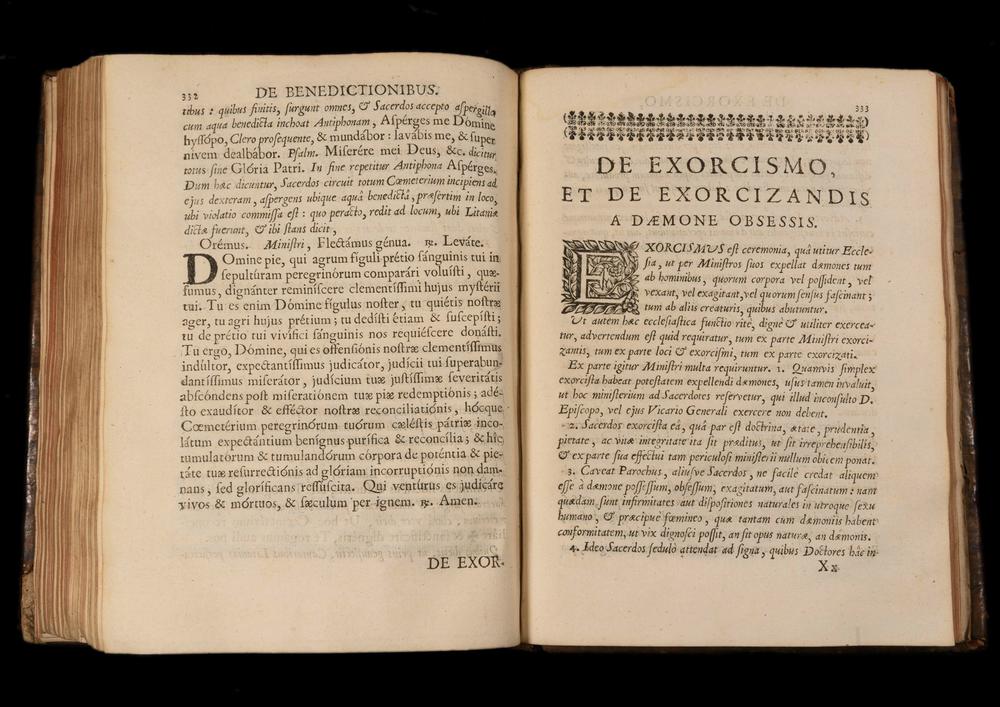 332 DE BENEDICTIONIBUS.
tibus : quibus finitis, ſurgunt omnes, & Sacerdos accepto aſpergillo
cum aqua benedicta inchoat Antiphonam, Aſpérges me Dómine
hyſſópo, Clero proſequente, & mundábor : lavábis me, & ſuper
nivem dealbábor. Pſalm. Miſerére mei Deus, &c. dicitur
totus ſine Glória Patri. In fine repetitur Antiphona Aſpérges.
Dum hæc dicuntur, Sacerdos circuit totum Cœmeterium incipiens ad
ejus dexteram, aſpergens ubique aquâ benedictâ, præſertim in loco,
ubi violatio commiſſa eſt : quo peracto, redit ad locum, ubi Litaniæ
dictæ fuerunt, & ibi ſtans dicit,
Orémus. Miniſtri, Flectámus génua. ℟. Leváte.
DOmine pie, qui agrum figuli prétio ſánguinis tui in
ſepultúram peregrinórum comparári voluíſti, quæ-
ſumus, dignánter reminíſcere clementíſſimi hujus myſtérii
tui. Tu es enim Dómine fígulus noſter, tu quiétis noſtræ
ager, tu agri hujus prétium ; tu dedíſti étiam & ſuſcepíſti ;
tu de prétio tui vivífici ſánguinis nos requiéſcere donáſti.
Tu ergo, Dómine, qui es offenſiónis noſtræ clementíſſimus
indúltor, expectantíſſimus judicátor, judícii tui ſuperabun-
dantíſſimus miſerátor, judícium tuæ juſtíſſimæ ſeveritátis
abſcóndens poſt miſeratiónem tuæ piæ redemptiónis ; adé-
ſto exaudítor & efféctor noſtræ reconciliatiónis, hócque
Cœmetérium peregrinórum tuórum cæléſtis pátriæ inco-
látum expectántium benígnus purífica & reconcília ; & hîc
tumulatórum & tumulandórum córpora de poténtia & pie-
táte tuæ reſurrectiónis ad glóriam incorruptiónis non dam-
nans, ſed gloríficans reſſúſcita. Qui ventúrus es judicáre
vivos & mórtuos, & ſæculum per ignem. ℟. Amen.
DE EXOR-
333
DE EXORCISMO,
ET DE EXORCIZANDIS
A DÆMONE OBSESSIS.
EXORCISMUS eſt ceremonia, quâ utitur Eccle-
ſia, ut per Miniſtros ſuos expellat dæmones tum
ab hominibus, quorum corpora vel poſſident, vel
vexant, vel exagitant, vel quorum ſenſus faſcinant ;
tum ab aliis creaturis, quibus abutuntur.
Ut autem hæc eccleſiaſtica functio ritè, dignè & utiliter exercea-
tur, advertendum eſt quid requiratur, tum ex parte Miniſtri exorci-
zantis, tum ex parte loci & exorciſmi, tum ex parte exorcizati.
Ex parte igitur Miniſtri multa requiruntur. 1. Quamvis ſimplex
exorciſta habeat poteſtatem expellendi dæmones, uſus tamen invaluit,
ut hoc miniſterium ad Sacerdotes reſervetur, qui illud inconſulto D.
Epiſcopo, vel ejus Vicario Generali exercere non debent.
2. Sacerdos exorciſta eâ, quâ par eſt doctrina, ætate, prudentia,
pietate, ac vitæ integritate ita ſit præditus, ut ſit irreprehenſibilis,
& ex parte ſua effectui tam periculoſi miniſterii nullum obicem ponat.
3. Caveat Parochus, aliuſve Sacerdos, ne facilè credat aliquem
eſſe à dæmone poſſeſſum, obſeſſum, exagitatum, aut faſcinatum : nam
quædam ſunt infirmitates aut diſpoſitiones naturales in utroque ſexu
humano, & præcipuè fœmineo, quæ tantam cum dæmoniis habent
conformitatem, ut vix dignoſci poſſit, an ſit opus naturæ, an dæmonis.
4. Ideo Sacerdos ſedulo attendat ad ſigna, quibus Doctores hâc in-
Xx